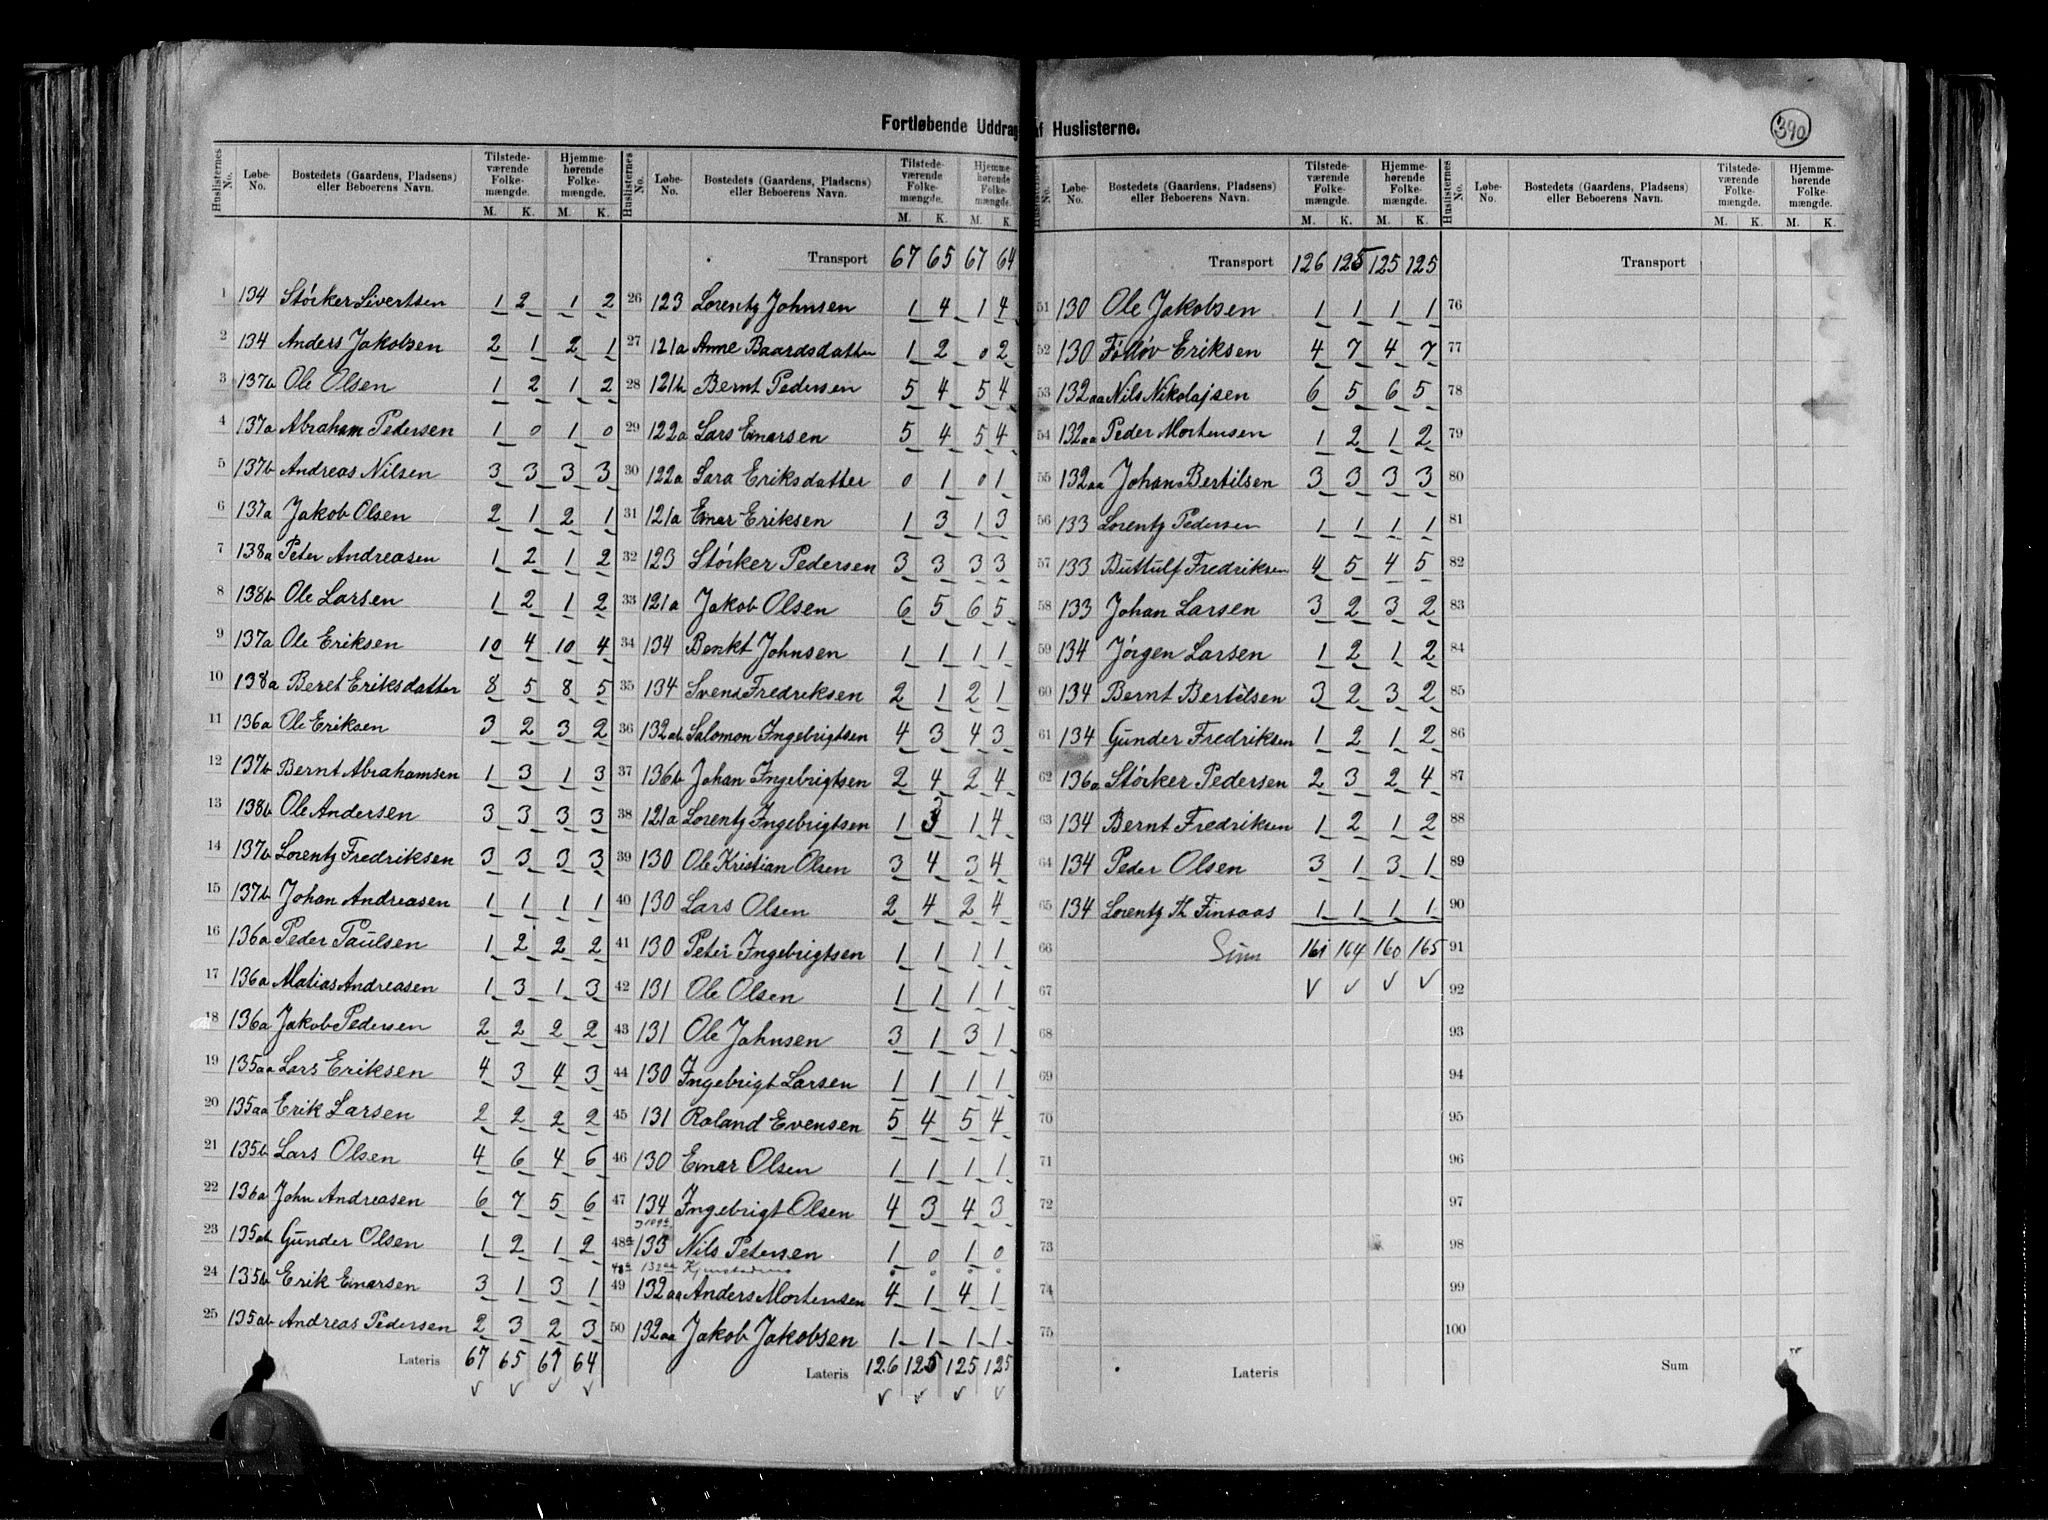 Fortløbende Uddrag af Huslisterne.
390
Huslisternes No. Løbe-No. Bostedets (Gaardens, Pladsens) eller Beboerens Navn. Tilstedeværende Folkemængde. M. K. Hjemmehørende Folkemængde. M. K.
1 134 Störker Sivertsen 1 2 1 2
2 134 Anders Jakobsen 2 1 2 1
3 137b Ole Olsen 1 2 1 2
4 137a Abraham Pedersen 1 0 1 0
5 137b Andreas Nilsen 3 3 3 3
6 137a Jakob Olsen 2 1 2 1
7 138a Peter Andreasen 1 2 1 2
8 138b Ole Larsen 1 2 1 2
9 137a Ole Eriksen 10 4 10 4
10 138a Beret Eriksdatter 8 5 8 5
11 136a Ole Eriksen 3 2 3 2
12 137b Bernt Abrahamsen 1 3 1 3
13 138b Ole Andersen 3 3 3 3
14 137b Lorentz Fredriksen 3 3 3 3
15 137b Johan Andreasen 1 1 1 1
16 136a Peder Paulsen 1 2 2 2
17 136a Matias Andreasen 1 3 1 3
18 136a Jakob Pedersen 2 2 2 2
19 135aa Lars Eriksen 4 3 4 3
20 135aa Erik Larsen 2 2 2 2
21 135b Lars Olsen 4 6 4 6
22 136a John Andreasen 6 7 5 6
23 135ab Gunder Olsen 1 2 1 2
24 135b Erik Einarsen 3 1 3 1
25 135ab Andreas Pedersen 2 3 2 3
Lateris 67 65 67 64
Huslisternes No. Løbe-No. Bostedets (Gaardens, Pladsens) eller Beboerens Navn. Tilstedeværende Folkemængde. M. K. Hjemmehørende Folkemængde. M. K.
Transport 67 65 67 64
26 123 Lorentz Johnsen 1 4 1 4
27 121a Anne Baardsdatter 1 2 0 2
28 121b Bernt Pedersen 5 4 5 4
29 122a Lars Einarsen 5 4 5 4
30 122a Sara Eriksdatter 0 1 0 1
31 121a Einar Eriksen 1 3 1 3
32 123 Störker Pedersen 3 3 3 3
33 121a Jakob Olsen 6 5 6 5
34 134 Benkt Johnsen 1 1 1 1
35 134 Svend Fredriksen 2 1 2 1
36 132ab Salomon Ingebrigtsen 4 3 4 3
37 136b Johan Ingebrigtsen 2 4 2 4
38 121a Lorentz Ingebrigtsen 1 3 1 4
39 130 Ole Kristian Olsen 3 4 3 4
40 130 Lars Olsen 2 4 2 4
41 130 Peter Ingebrigtsen 1 1 1 1
42 131 Ole Olsen 1 1 1 1
43 131 Ole Johnsen 3 1 3 1
44 130 Ingebrigt Larsen 1 1 1 1
45 131 Roland Evensen 5 4 5 4
46 130 Einar Olsen 1 1 1 1
47 134 Ingebrigt Olsen 4 3 4 3
48a 133 Nils Petersen 1 0 1 0
132aa
49 132aa Anders Mortensen 4 1 4 1
50 132aa Jakob Jakobsen 1 1 1 1
Lateris 126 125 125 125
Huslisternes No. Løbe-No. Bostedets (Gaardens, Pladsens) eller Beboerens Navn. Tilstedeværende Folkemængde. M. K. Hjemmehørende Folkemængde. M. K.
Transport 126 125 125 125
51 130 Ole Jakobsen 1 1 1 1
52 130 Eriksen 4 7 4 7
53 132aa Nils Nikolajsen 6 5 6 5
54 132aa Peder Mortensen 1 2 1 2
55 132aa Johan Bertilsen 3 3 3 3
56 133 Lorentz Pedersen 1 1 1 1
57 133 Buttulf Fredriksen 4 5 4 5
58 133 Johan Larsen 3 2 3 2
59 134 Jörgen Larsen 1 2 1 2
60 134 Bernt Bertilsen 3 2 3 2
61 134 Gunder Fredriksen 1 2 1 2
62 136a Störker Pedersen 2 3 2 4
63 134 Bernt Fredriksen 1 2 1 2
64 134 Peder Olsen 3 1 3 1
65 134 Lorentz Th Finsaas 1 1 1 1
66 Sum 161 164 160 165
67
68
69
70
71
72
73
74
75
Lateris
Huslisternes No. Løbe-No. Bostedets (Gaardens, Pladsens) eller Beboerens Navn. Tilstedeværende Folkemængde. M. K. Hjemmehørende Folkemængde. M. K.
Transport
76
77
78
79
80
81
82
83
84
85
86
87
88
89
90
91
92
93
94
95
96
97
98
99
100
Sum